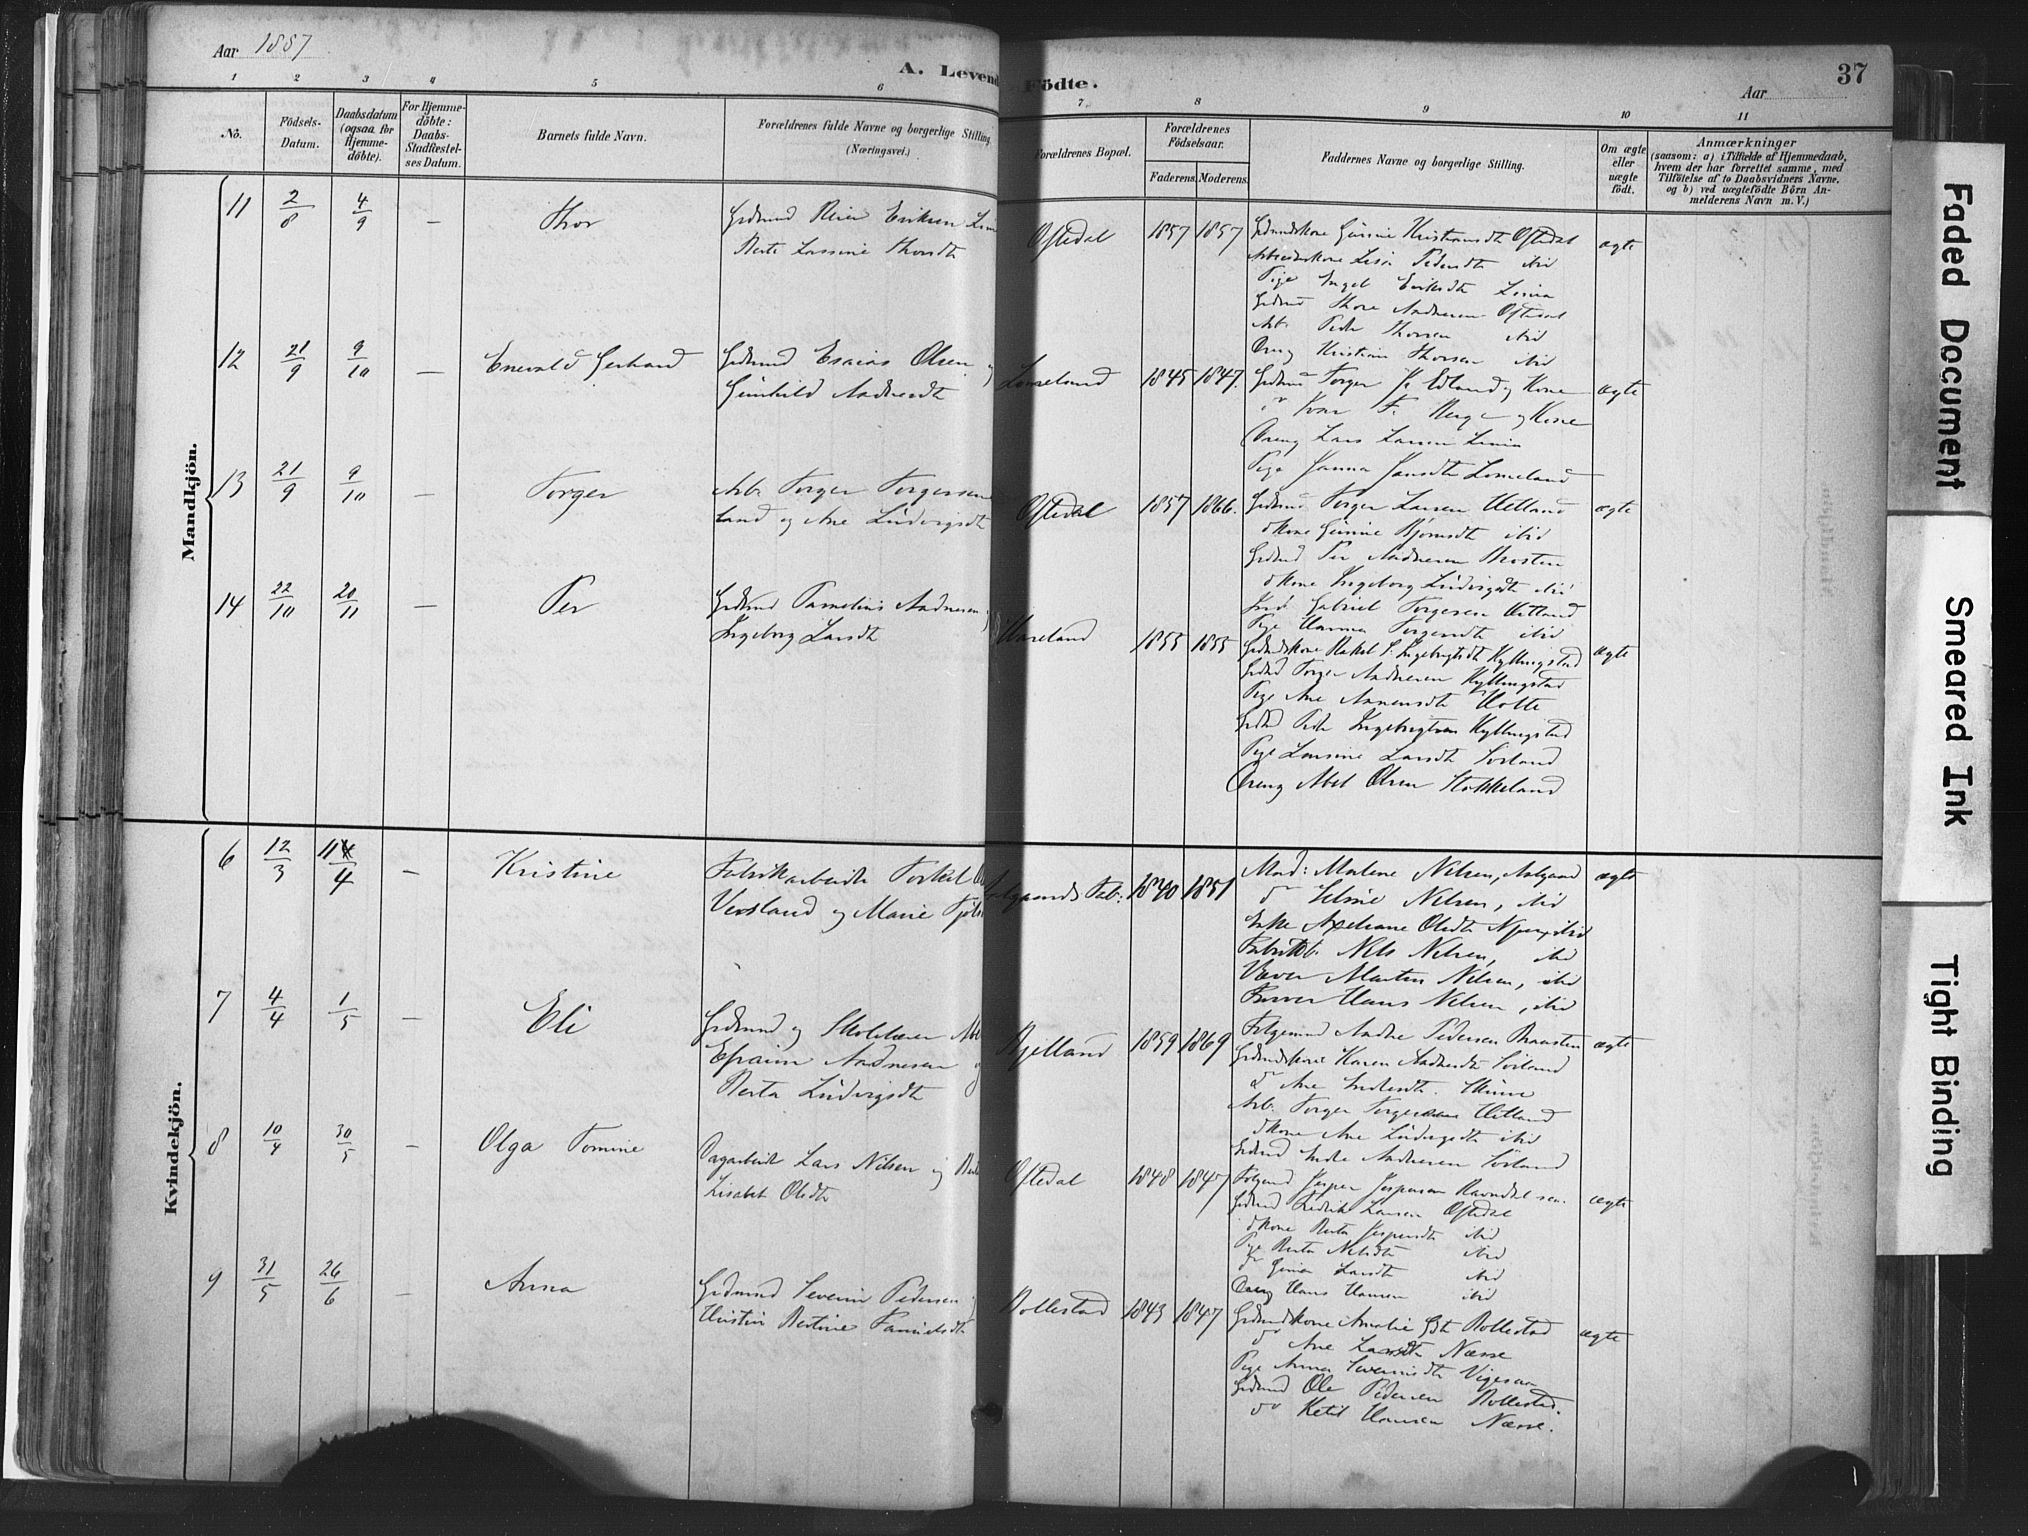 Aar 1887
A. Levende Födte.
37
Aar
1 2 3 4 5 6 7 8 9 10 11
No.
Födsels-Datum.
Daabsdatum (ogsaa for Hjemme-döbte).
For Hjemme-döbte: Daabs-Stadfæstel-ses Datum.
Barnets fulde Navn.
Forældrenes fulde Navne og borgerlige Stilling. (Næringsvei.)
Forældrenes Bopæl.
Forældrenes Födselsaar.
Faderens. Moderens.
Faddernes Navne og borgerlige Stilling.
Om ægte eller uægte födt.
Anmærkninger
(saasom: a) i Tilfælde af Hjemmedaab, hvem der har forrettet samme, med Tilföielse af to Daabsvidners Navne. og b) ved uægtefödte Börn An-melderens Navn m. V.)
Mandkjön.
11 2/8 4/9 — Thor
Grdmnd Reier Eriksen
Berte Lassine Thorsdt
Oftedal 1857 1857
Grdmndskone Gurine Kristiansdt Oftedal
Arbeiderkone Lise Pedersdt ibid
Pige Inger Eriksdt Lima
Grdmd Thore Andersen Oftedal
Arb. Peder Thorsen ibid
Dreng Kristian Thorsen ibid
ægte
12 21/9 9/10 — Enevald Gerhard
Grdmnd Esaias Olsen og
Gunhild Andersdt
Lomeland 1845 1847.
Grdmd Torger J. Edland og Kone
do Ivar T. Berge og Kone
Dreng Lars Larsen Lima
Pige Janna Jansdt Lomeland
ægte
13 21/9 9/10 — Torger
Arb. Torger Torgersen
land og Ane Ludvigsdt
Oftedal 1857 1866.
Grdmd Torger Larsen Uetland
dkone Gurine Bjørnsdt ibid
Grdmd Per Andersen Braasten
dkone Ingeborg Ludvigsdt ibid
Gabriel Torgersen Uetland
Pige Hanna Torgersdt ibid
ægte
14 22/10 20/11 — Per
Grdmd Tarnelius Andersen og
Ingeborg Larsdt
Hareland 1855 1855
Grdmdskone Rakel S. Ingebrigtsdt Kyllingstad
Grdmd Torger Andersen Kyllingstad
Pige Ane Aanensdt Holte
Grdmd Peder Ingebrigtsen Kyllingstad
Pige Lassine Larsdt Sørland
Dreng Abel Olsen Stokkeland
ægte
Kvindekjön.
6 12/3 11/4 — Kristine
Fabrikarbeider Torkel
Vassland og Marie
Aalgaards Fab: 1840 1851
Mad: Malene Nelsen, Aalgaard
do Seline Nelsen, ibid
Enke Axeliane Olsdt ibid
Fabrikb. Nils Nelsen, ibid
Væver Martin Nelsen, ibid
Farver Hans Nelsen, ibid
ægte
7 4/4 1/5 — Eli
Grdmnd og Skolelærer
Efraim Andersen og
Berta Ludvigsdt
Bjelland 1859 1869
Folgemnd Andre Pedersen Braasten
Grdmndskone Karen Andersdt Sørland
do Ane
Arb. Torger Torgersen Uetland
dkone Ane Ludvigsdt ibid
Grdmnd Andersen Sørland
ægte
8 10/4 30/5 — Olga Tomine
Dagarbeider Lars Nilsen og
Lisabet Olsdt
Oftedal 1848 1847
Folgemd Jesper Jespersen Ravndal sen.
Grdmnd Fredrik Larsen Oftedal
dkone Berta Jespersdt ibid
Pige Berta Nilsdt ibid
do Larsdt ibid
Dreng Hans Hansen ibid
ægte
9 31/5 26/6 — Anna
Grdmnd Severin Pedersen og
Bertine Danielsdt
Bollestad 1843 1847
Grdmndskone Amalie Bollestad
do Ane Larsdt Næsse
Pige Anna Severinsdt Vigesaa
Grdmnd Ole Pedersen Bollestad.
do Ketil Hansen Næsse.
ægte
Faded Document
Smeared Ink
Tight Binding